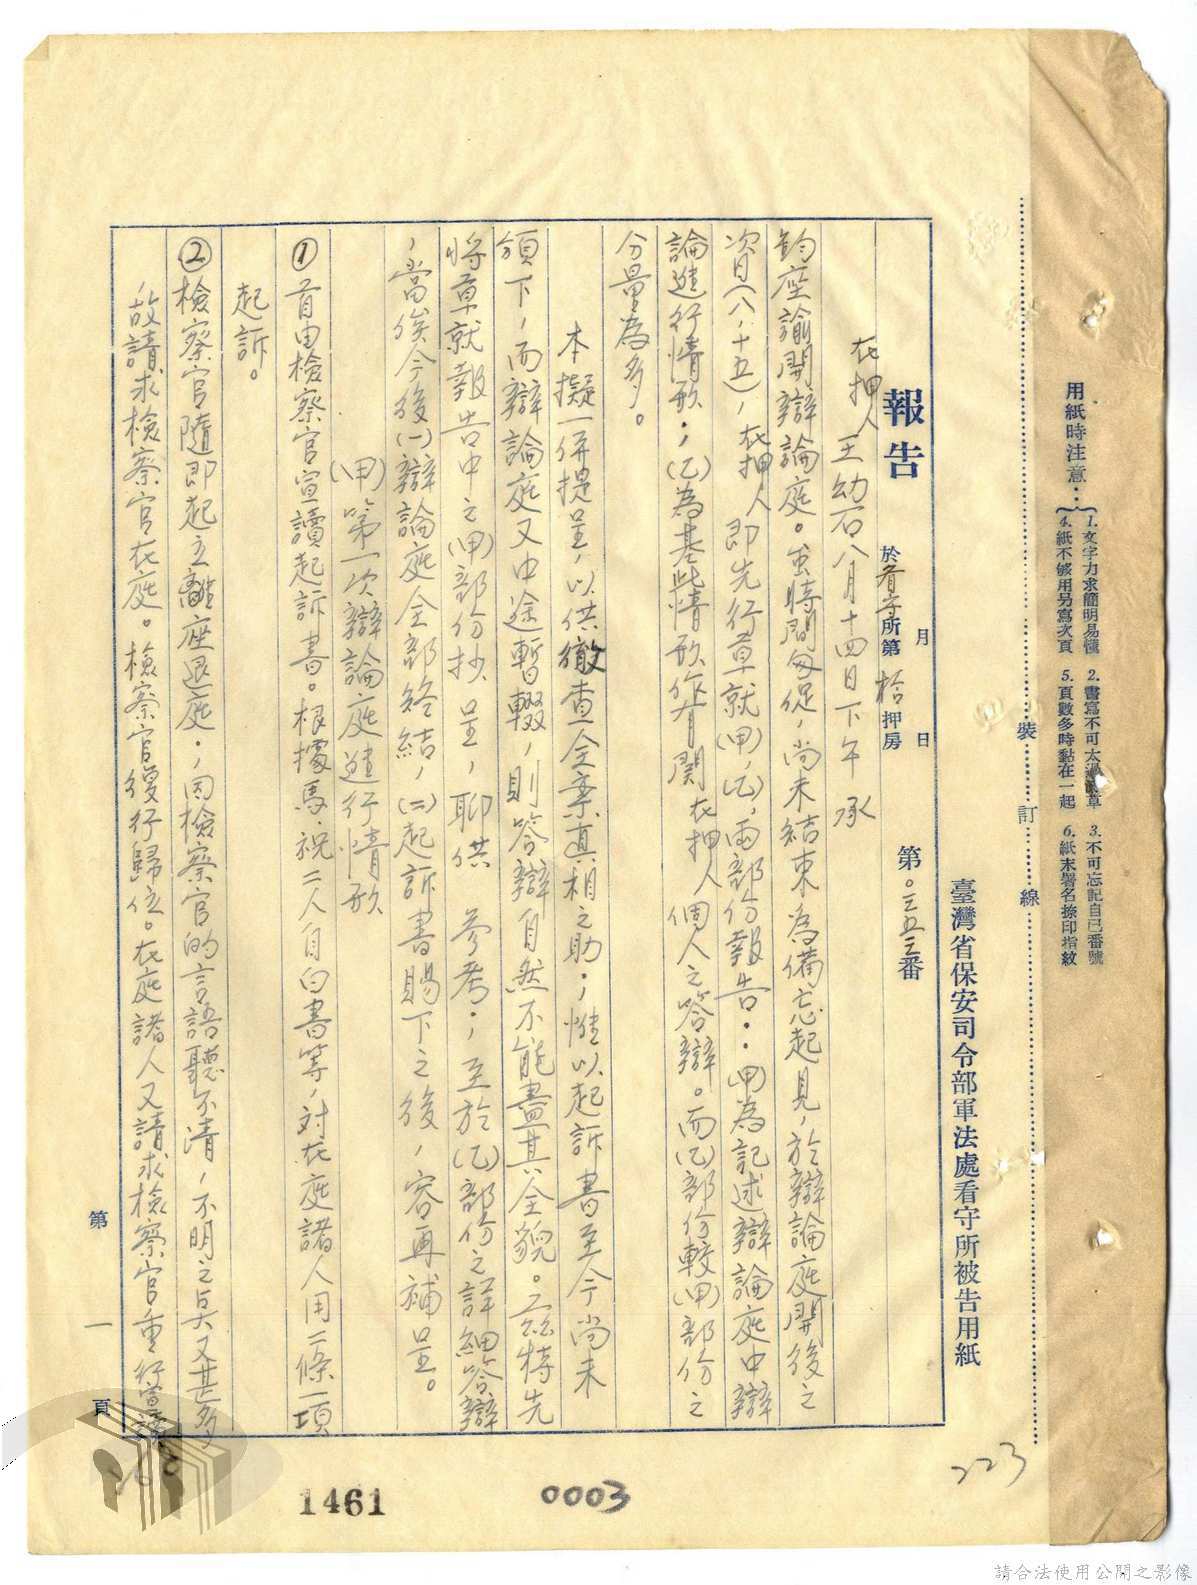 用紙時注意：
1.文字力求簡明易懂 2.書寫不可太過潦草 3.不可忘記自己番號
4.紙不够用另寫次頁 5.頁數多時黏在一起 6.紙末署名捺印指紋
裝訂線
臺灣省保安司令部軍法處看守所被告用紙
報告 月 日
於看守所第拾押房
第〇三五三番
在押人王幼石八月十四日下午 承
鈞座諭開辯論庭。虽時間匆促，尚未結束為備忘起見，於辯論庭開後之
次日（八，十五），在押人即先行草就(甲)，(乙)，両部份報告：(甲)為記述辯論庭中辯
論進行情形；(乙)為基此情形作有関在押人個人之答辯。而(乙)部份較(甲)部份之
分量為多。
本擬一併提呈，以供徹查全案真相之助；惟以起訴書至今尚未
領下，而辯論庭又中途暫輟，則答辯自然不能盡其全貌。茲特先
将草就報告中之(甲)部份抄呈，聊供 參考；至於(乙)部份之詳細答辯
，當俟今後(一)辯論庭全部終結，(二)起訴書賜下之後，容再補呈。
(甲)第一次辯論庭進行情形
①首由檢察官宣讀起訴書。根據馬，祝二人自白書等，対在庭諸人用二條一項
起訴。
②檢察官隨即起立離座退庭，因檢察官的言語聽不清，不明之点又甚多
，故請求檢察官在庭。檢察官復行歸位。在庭諸人又請求檢察官重行宣讀
第一頁
1461
0003
223
請合法使用公開之影像